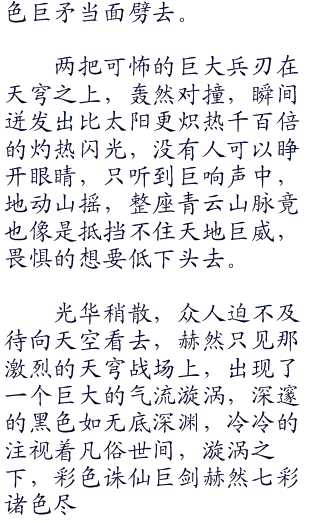 色巨矛当面劈去。
两把可怖的巨大兵刃在
天穹之上，轰然对撞，瞬间
迸发出比太阳更炽热千百倍
的灼热闪光，没有人可以睁
开眼睛，只听到巨响声中，
地动山摇，整座青云山脉竟
也像是抵挡不住天地巨威，
畏惧的想要低下头去。
光华稍散，众人迫不及
待向天空看去，赫然只见那
激烈的天穹战场上，出现了
一个巨大的气流漩涡，深邃
的黑色如无底深渊，冷冷的
注视着凡俗世间，漩涡之
下，彩色诛仙巨剑赫然七彩
诸色尽